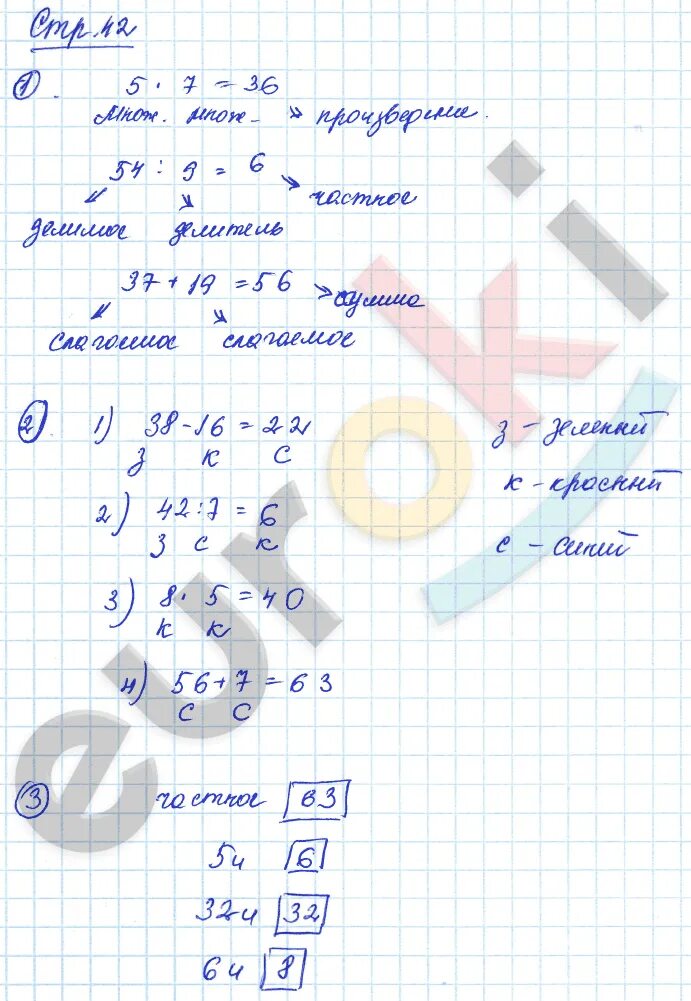 Стр. 42
1. 5 · 7 = 36
множ. множ. произведение.
54 : 9 = 6
частное
делимое делитель
37 + 19 = 56
сумма
слагаемое слагаемое
2 1) 38 - 16 = 22
з к с
з - зеленый
к - красный
с - синий
2) 42 : 7 = 6
з с к
3) 8 · 5 = 40
к к
4) 56 + 7 = 63
с с
3 частное 63
5 и 6
32 и 32
6 и 8
euroki